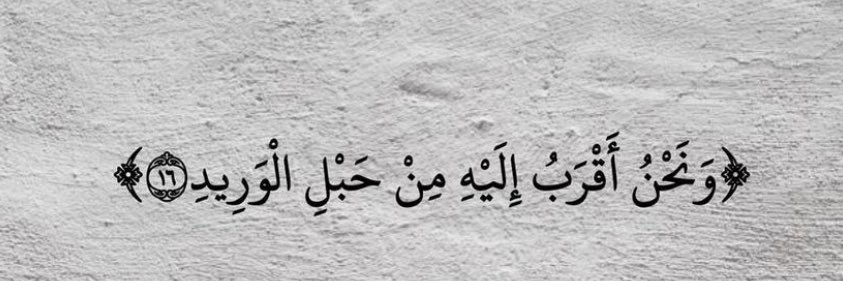 ﴿وَنَحْنُ أَقْرَبُ إِلَيْهِ مِنْ حَبْلِ الْوَرِيدِ ۝١٦﴾